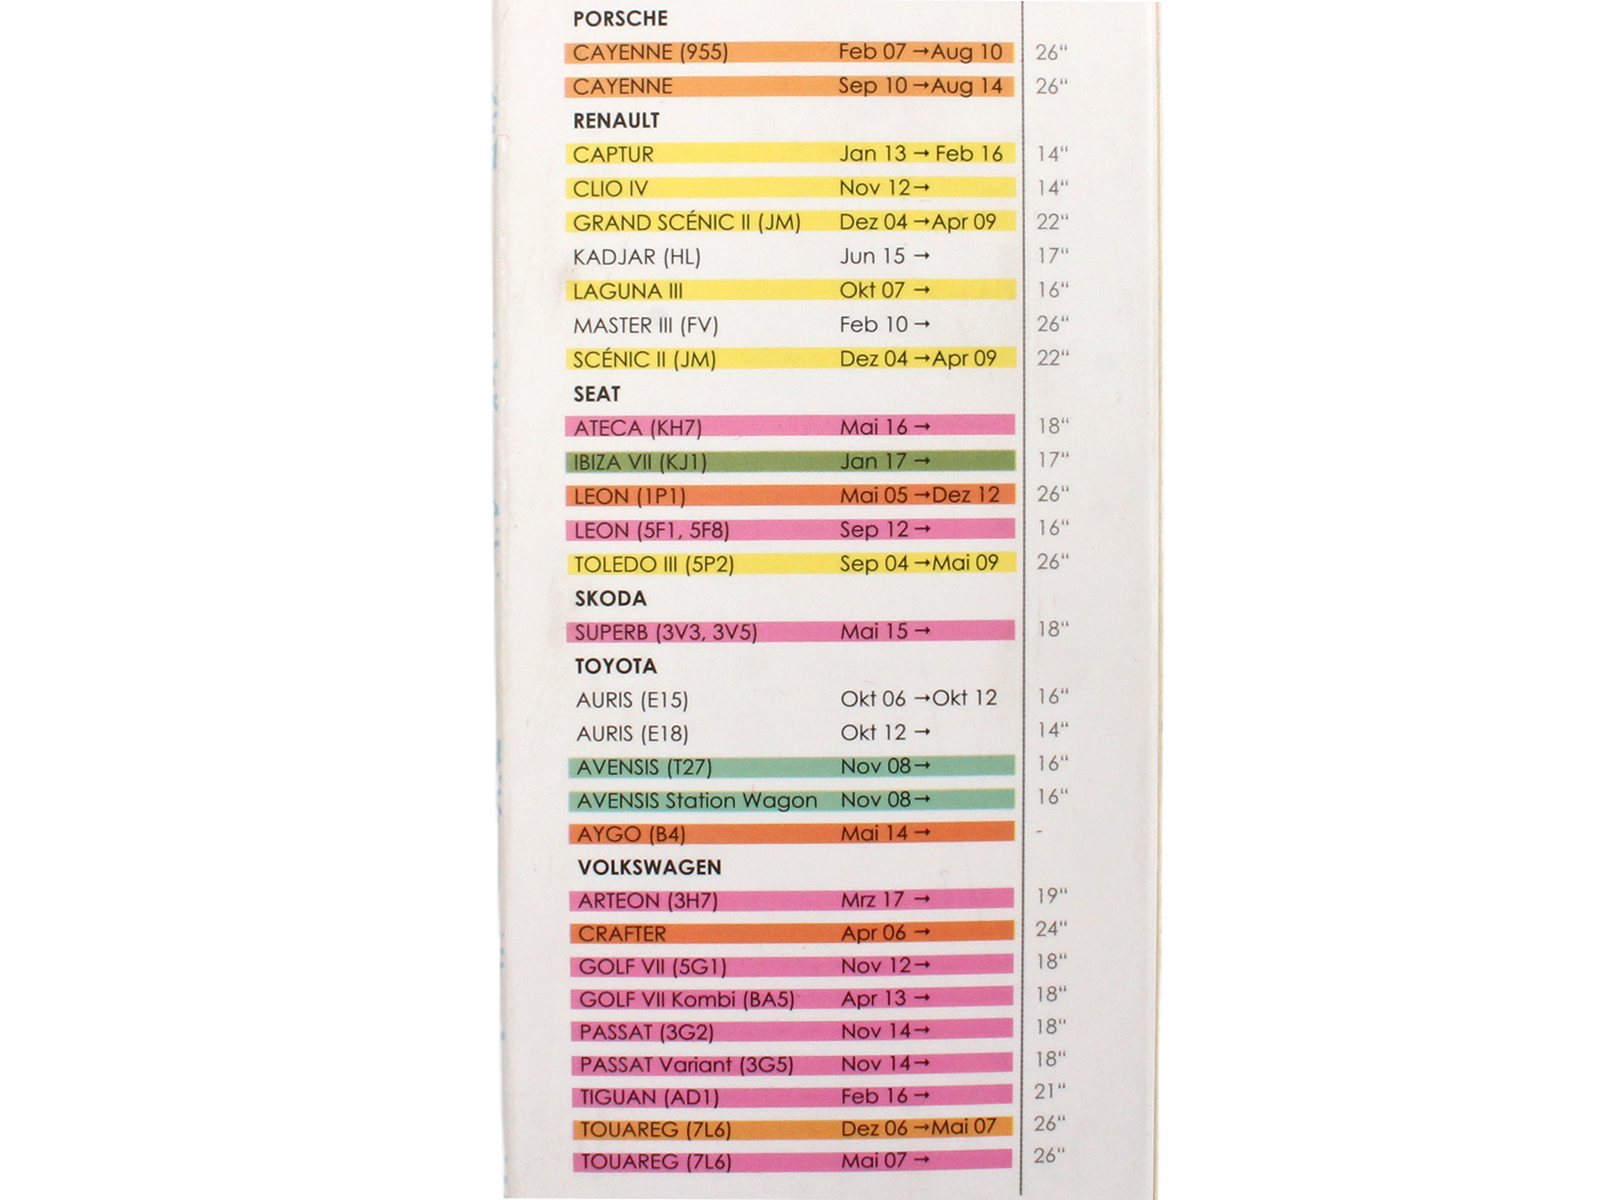 PORSCHE
CAYENNE (955) Feb 07 →Aug 10 26"
CAYENNE Sep 10 →Aug 14 26"
RENAULT
CAPTUR Jan 13 → Feb 16 14"
CLIO IV Nov 12→ 14"
GRAND SCÉNIC II (JM) Dez 04 →Apr 09 22"
KADJAR (HL) Jun 15 → 17"
LAGUNA III Okt 07 → 16"
MASTER III (FV) Feb 10 → 26"
SCÉNIC II (JM) Dez 04 →Apr 09 22"
SEAT
ATECA (KH7) Mai 16 → 18"
IBIZA VII (KJ1) Jan 17 → 17"
LEON (1P1) Mai 05 →Dez 12 26"
LEON (5F1, 5F8) Sep 12 → 16"
TOLEDO III (5P2) Sep 04 →Mai 09 26"
SKODA
SUPERB (3V3, 3V5) Mai 15 → 18"
TOYOTA
AURIS (E15) Okt 06 →Okt 12 16"
AURIS (E18) Okt 12 → 14"
AVENSIS (T27) Nov 08→ 16"
AVENSIS Station Wagon Nov 08→ 16"
AYGO (B4) Mai 14 → -
VOLKSWAGEN
ARTEON (3H7) Mrz 17 → 19"
CRAFTER Apr 06 → 24"
GOLF VII (5G1) Nov 12→ 18"
GOLF VII Kombi (BA5) Apr 13 → 18"
PASSAT (3G2) Nov 14→ 18"
PASSAT Variant (3G5) Nov 14→ 18"
TIGUAN (AD1) Feb 16 → 21"
TOUAREG (7L6) Dez 06 →Mai 07 26"
TOUAREG (7L6) Mai 07 → 26"